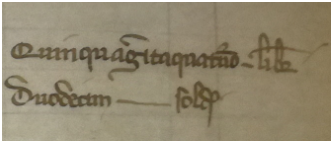 Quinquagītaquatūo – libr
Duodecim — sold